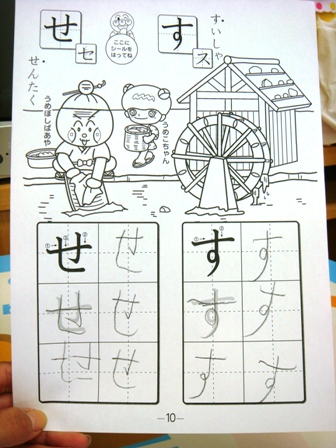 す
ス
すいしゃ
ここに
シールを
はってね
せ
セ
せんたく
うめこちゃん
うめぼしばあや
す す
す す
す す
せ せ
せ せ
せ せ
—10—